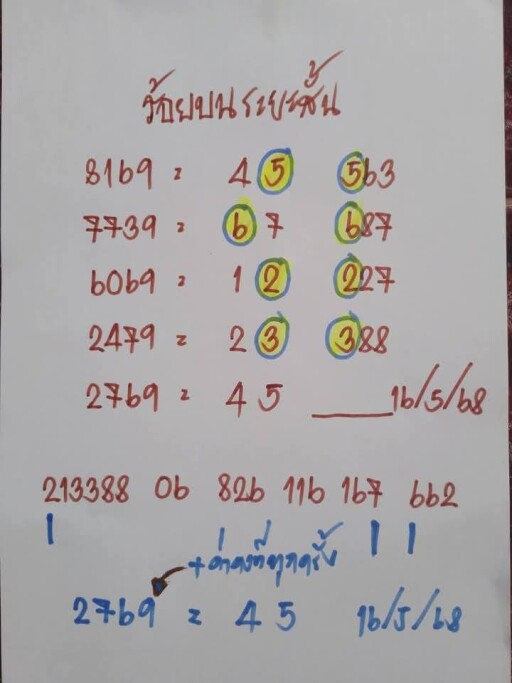 ร้อยบนระยะสั้น
8169 = 45 563
7739 = 67 687
6069 = 12 227
2479 = 23 388
2769 = 45 ____16/5/68
213388 06 826 116 167 662
+ค่าคงที่ทุกครั้ง
2769 = 45 16/5/68